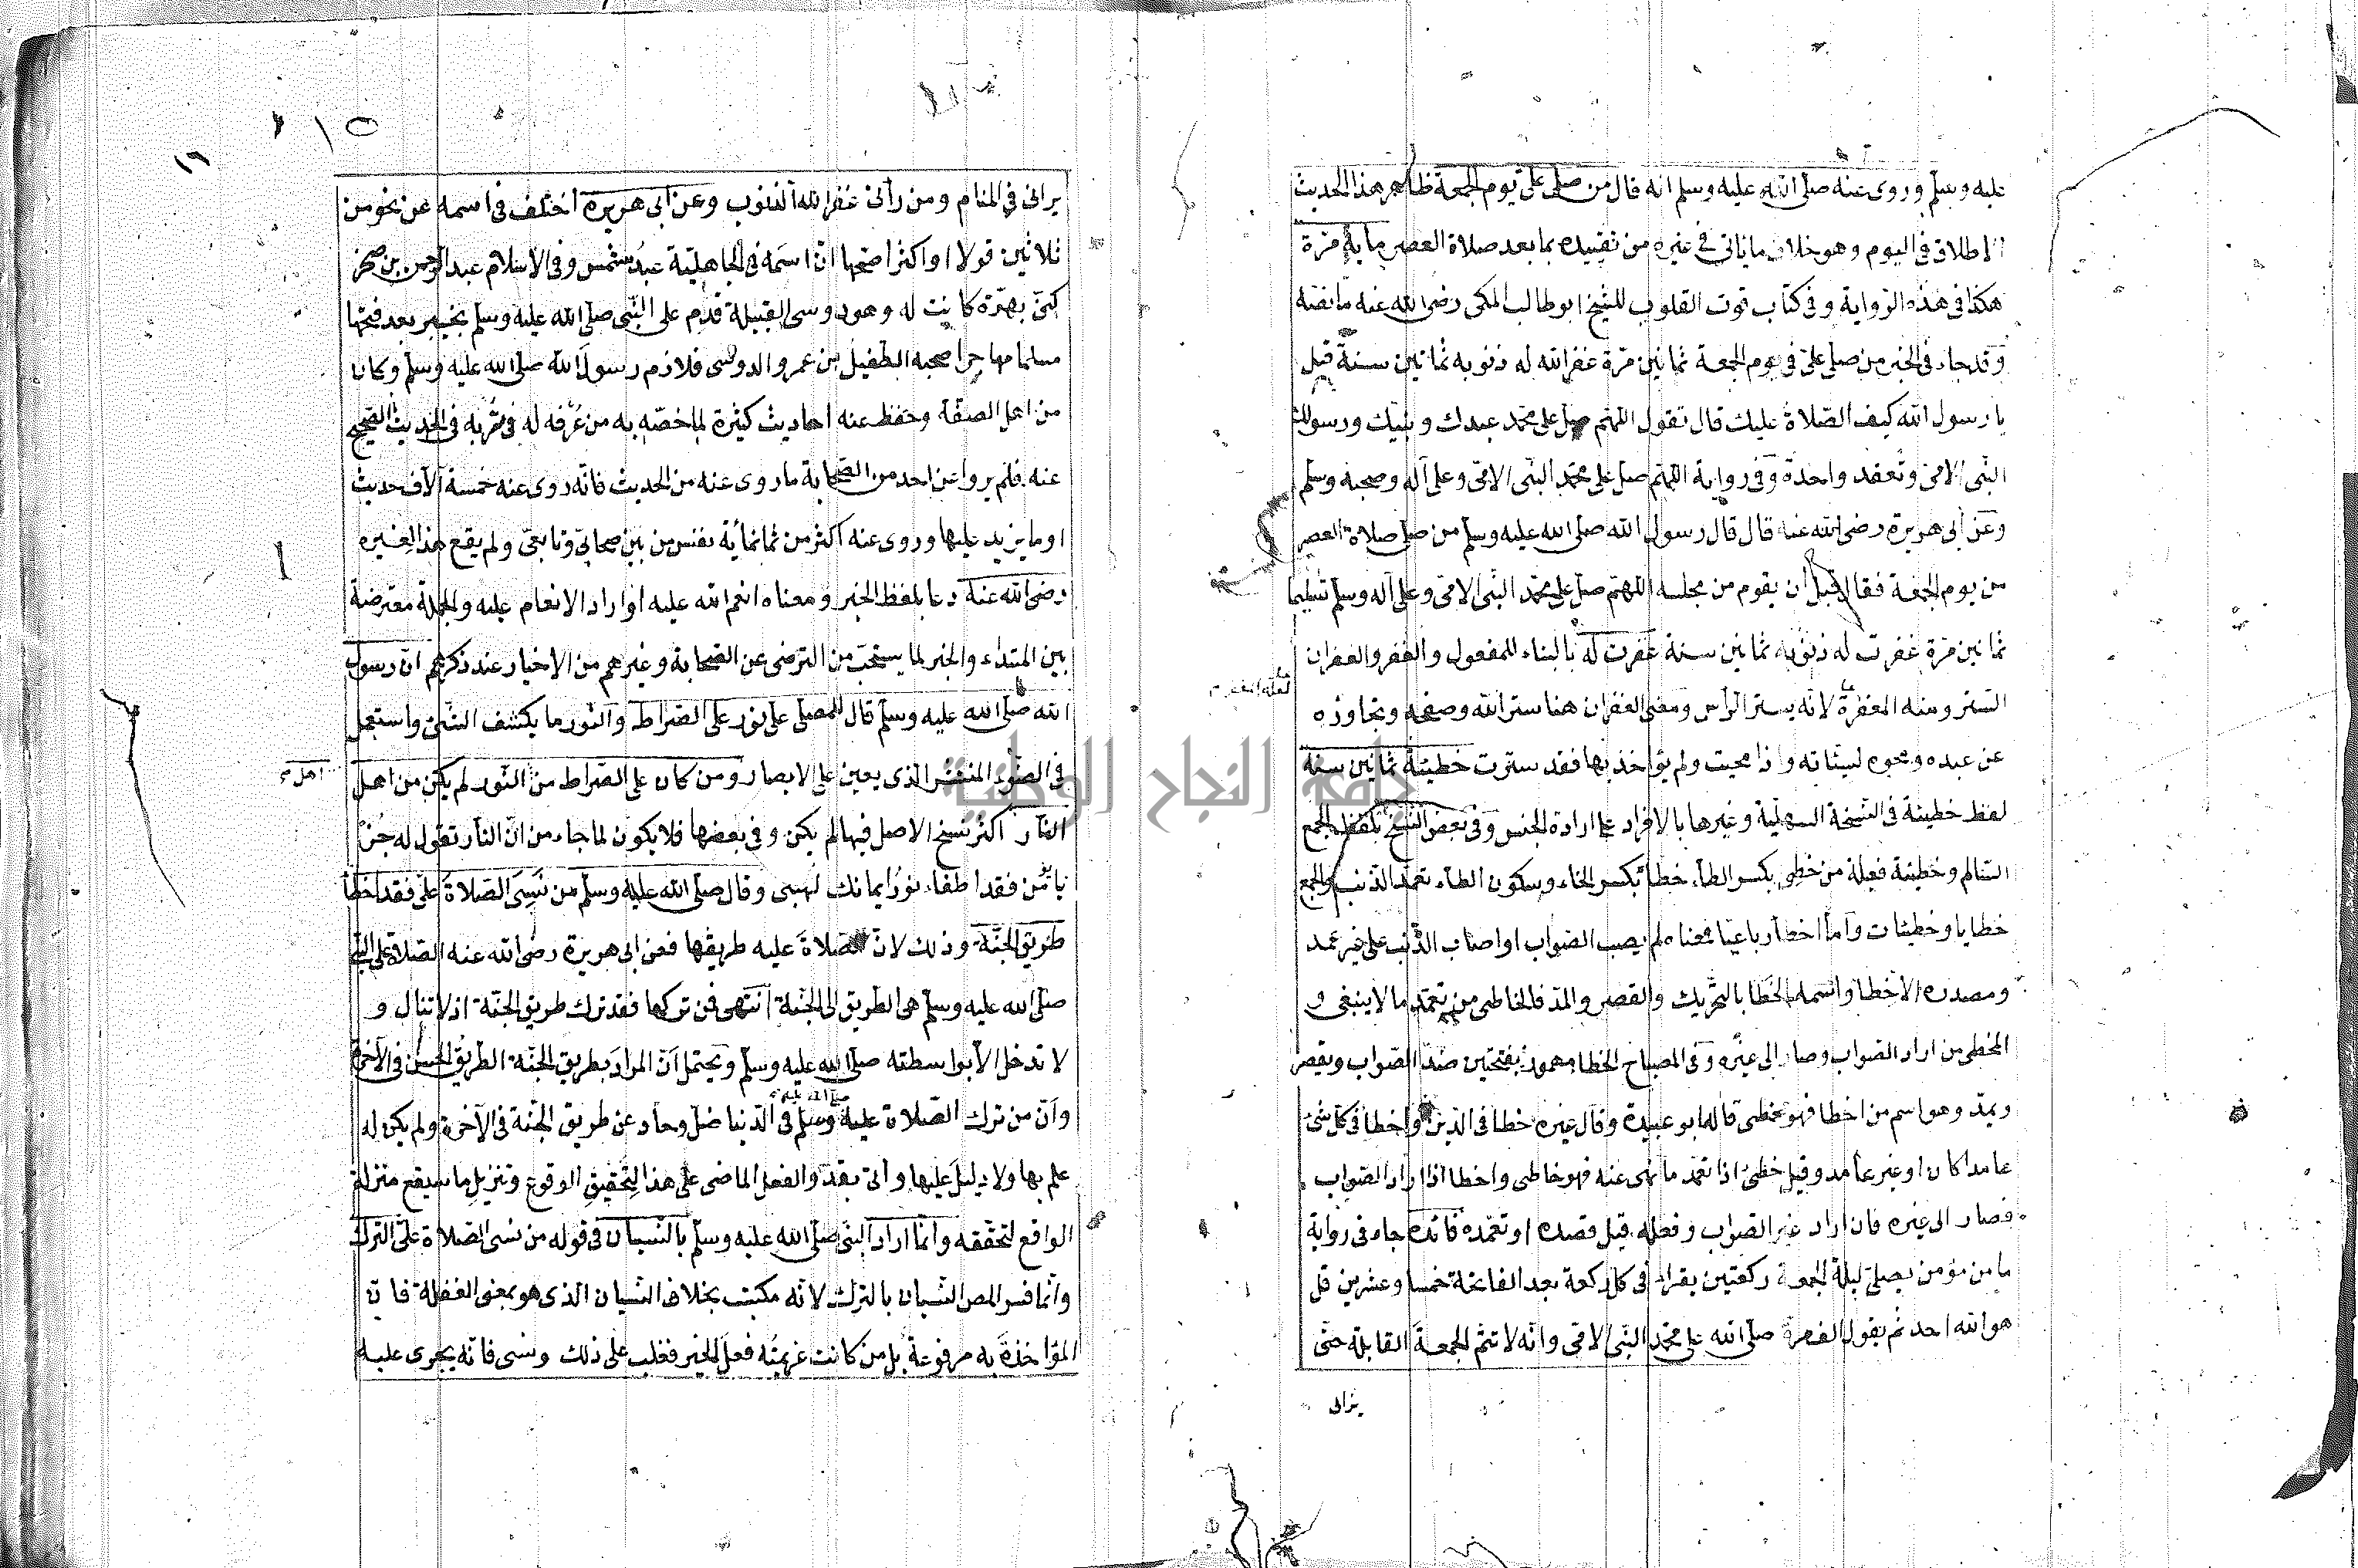 عليه وسلم وروى عنه صلى الله عليه وسلم انه قال من صلى علي يوم الجمعة ظاهر هذا الحديث
الاطلاق في اليوم وهو خلاف ما ياتي في غيره من تقييده بما بعد صلاة العصر ماية مرة
هكذا في هذه الرواية وفي كتاب قوت القلوب للشيخ ابو طالب المكي رضى الله عنه ما نصه
وقد جاء في الخبر من صلى علي في يوم الجمعة ثمانين مرة غفر الله له ذنوبه ثمانين سنة قيل
يا رسول الله كيف الصلاة عليك قال تقول اللهم صل على محمد عبدك ونبيك ورسولك
النبي الامي وتعقد واحدة وفي رواية اللهم صل على محمد النبي الامي وعلى آله وصحبه وسلم
وعن ابي هريرة رضى الله عنه قال قال رسول الله صلى الله عليه وسلم من صلى صلاة العصر
من يوم الجمعة فقال قبل أن يقوم من مجلسه اللهم صل على محمد النبي الامي وعلى آله وسلم تسليما
ثمانين مرة غفرت له ذنوبه ثمانين سنة غفرت له بالبناء للمفعول والغفر والغفران
الستر ومنه المغفرة لانه يستر الراس ومعنى الغفران هنا ستر الله وصفحه وتجاوزه
عن عبده ومحوه لسيئاته واذا محيت ولم يؤاخذ بها فقد سترت خطيئة ثمانين سنة
لفظ خطيئة في النسخة السهلية وغيرها بالافراد على ارادة الجنس وفي بعض النسخ بلفظ الجمع
السالم وخطيئة فعيلة من خطي بكسر الطاء خطأ بكسر الخاء وسكون الطاء تعمد الذنب والجمع
خطايا وخطيئات وأما أخطأ رباعيا فمعناه لم يصب الصواب او اصاب الذنب على غير عمد
ومصدره الاخطا واسمه الخطا بالتحريك والقصر والمد فالخاطى من تعمد ما لا ينبغى و
المخطى من اراد الصواب وصار الى غيره وفي المصباح الخطا مهموز بفتحتين ضد الصواب ويقصر
ويمد وهو اسم من اخطا فهو مخطى قاله ابو عبيدة وقال غيره خطا في الدين واخطا في كل شئ
عامدا كان او غير عامد وقيل خطئ اذا تعمد ما نهى عنه فهو خاطى واخطا اذا اراد الصواب
فصار الى غيره فان اراد غير الصواب وفعله قيل قصده او تعمده فائدة جاء في رواية
ما من مؤمن يصلى ليلة الجمعة ركعتين يقرا في كل ركعة بعد الفاتحة خمسا وعشرين قل
هو الله احد ثم يقول الف مرة صلى الله على محمد النبي الامي وانه لا تتم الجمعة القابلة حتى
يرانى
يرانى في المنام ومن رأنى غفر الله الذنوب وعن ابي هريرة اختلف في اسمه عن نحو من
ثلاثين قولا او اكثر اصحها ان اسمه في الجاهلية عبد شمس وفي الاسلام عبد الرحمن بن صخر
كنى بهرة كانت له وهو دوسى القبيلة قدم على النبي صلى الله عليه وسلم بخيبر بعد فتحها
مسلما مهاجرا صحبه الطفيل بن عمرو الدوسى فلازم رسول الله صلى الله عليه وسلم وكان
من اهل الصفة وحفظ عنه احاديث كثيرة لما خصه به من غرفه له في ثوبه في الحديث الصحيح
عنه فلم يرو عن احد من الصحابة ما روى عنه من الحديث فانه روى عنه خمسة الآف حديث
او ما يزيد عليها وروى عنه اكثر من ثمانمائة نفس من بين صحابي وتابعي ولم يقع هذا لغيره
رضى الله عنه دعا بلفظ الخبر ومعناه انعم الله عليه او اراد الانعام عليه والجملة معترضة
بين المبتداء والخبر لما يستحب من الترضى عن الصحابة وغيرهم من الاخيار عند ذكرهم ان رسول
الله صلى الله عليه وسلم قال للمصلى على نور على الصراط والنور ما يكشف الشئ واستعمل
في الضوء المنتشر الذى يعين على الابصار ومن كان على الصراط من النور لم يكن من اهل
اهل
النار اكثر نسخ الاصل فيها لم يكن وفي بعضها فلا يكون لما جاء من ان النار تقول له جز
يا مؤمن فقد اطفاء نور ايمانك لهبى وقال صلى الله عليه وسلم من نسى الصلاة علي فقد اخطأ
طريق الجنة وذلك لان الصلاة عليه طريقها فعن ابي هريرة رضى الله عنه الصلاة على النبي
صلى الله عليه وسلم هى الطريق الى الجنة انتهى فمن تركها فقد ترك طريق الجنة اذ لا تنال و
لا تدخل الا بواسطته صلى الله عليه وسلم ويحتمل أن المراد بطريق الجنة الطريق الحسن في الآخرة
وان من ترك الصلاة عليه وسلم في الدنيا ضل وحاد عن طريق الجنة في الآخرة ولم يكن له
علم بها ولا دليل عليها واتى بقد والفعل الماضى على هذا لتحقيق الوقوع وتنزيل ما سيقع منزلة
الواقع لتحققه وانما اراد النبي صلى الله عليه وسلم بالنسيان في قوله من نسى الصلاة علي الترك
وانما فسر المص النسيان بالترك لانه مكتسب بخلاف النسيان الذى هو بمعنى الغفلة فان
المؤاخذة به مرفوعة بل من كانت عزيمته فعل الخير فغلب على ذلك ونسى فانه يجرى عليه
١٥
١٦
جامعة النجاح الوطنية